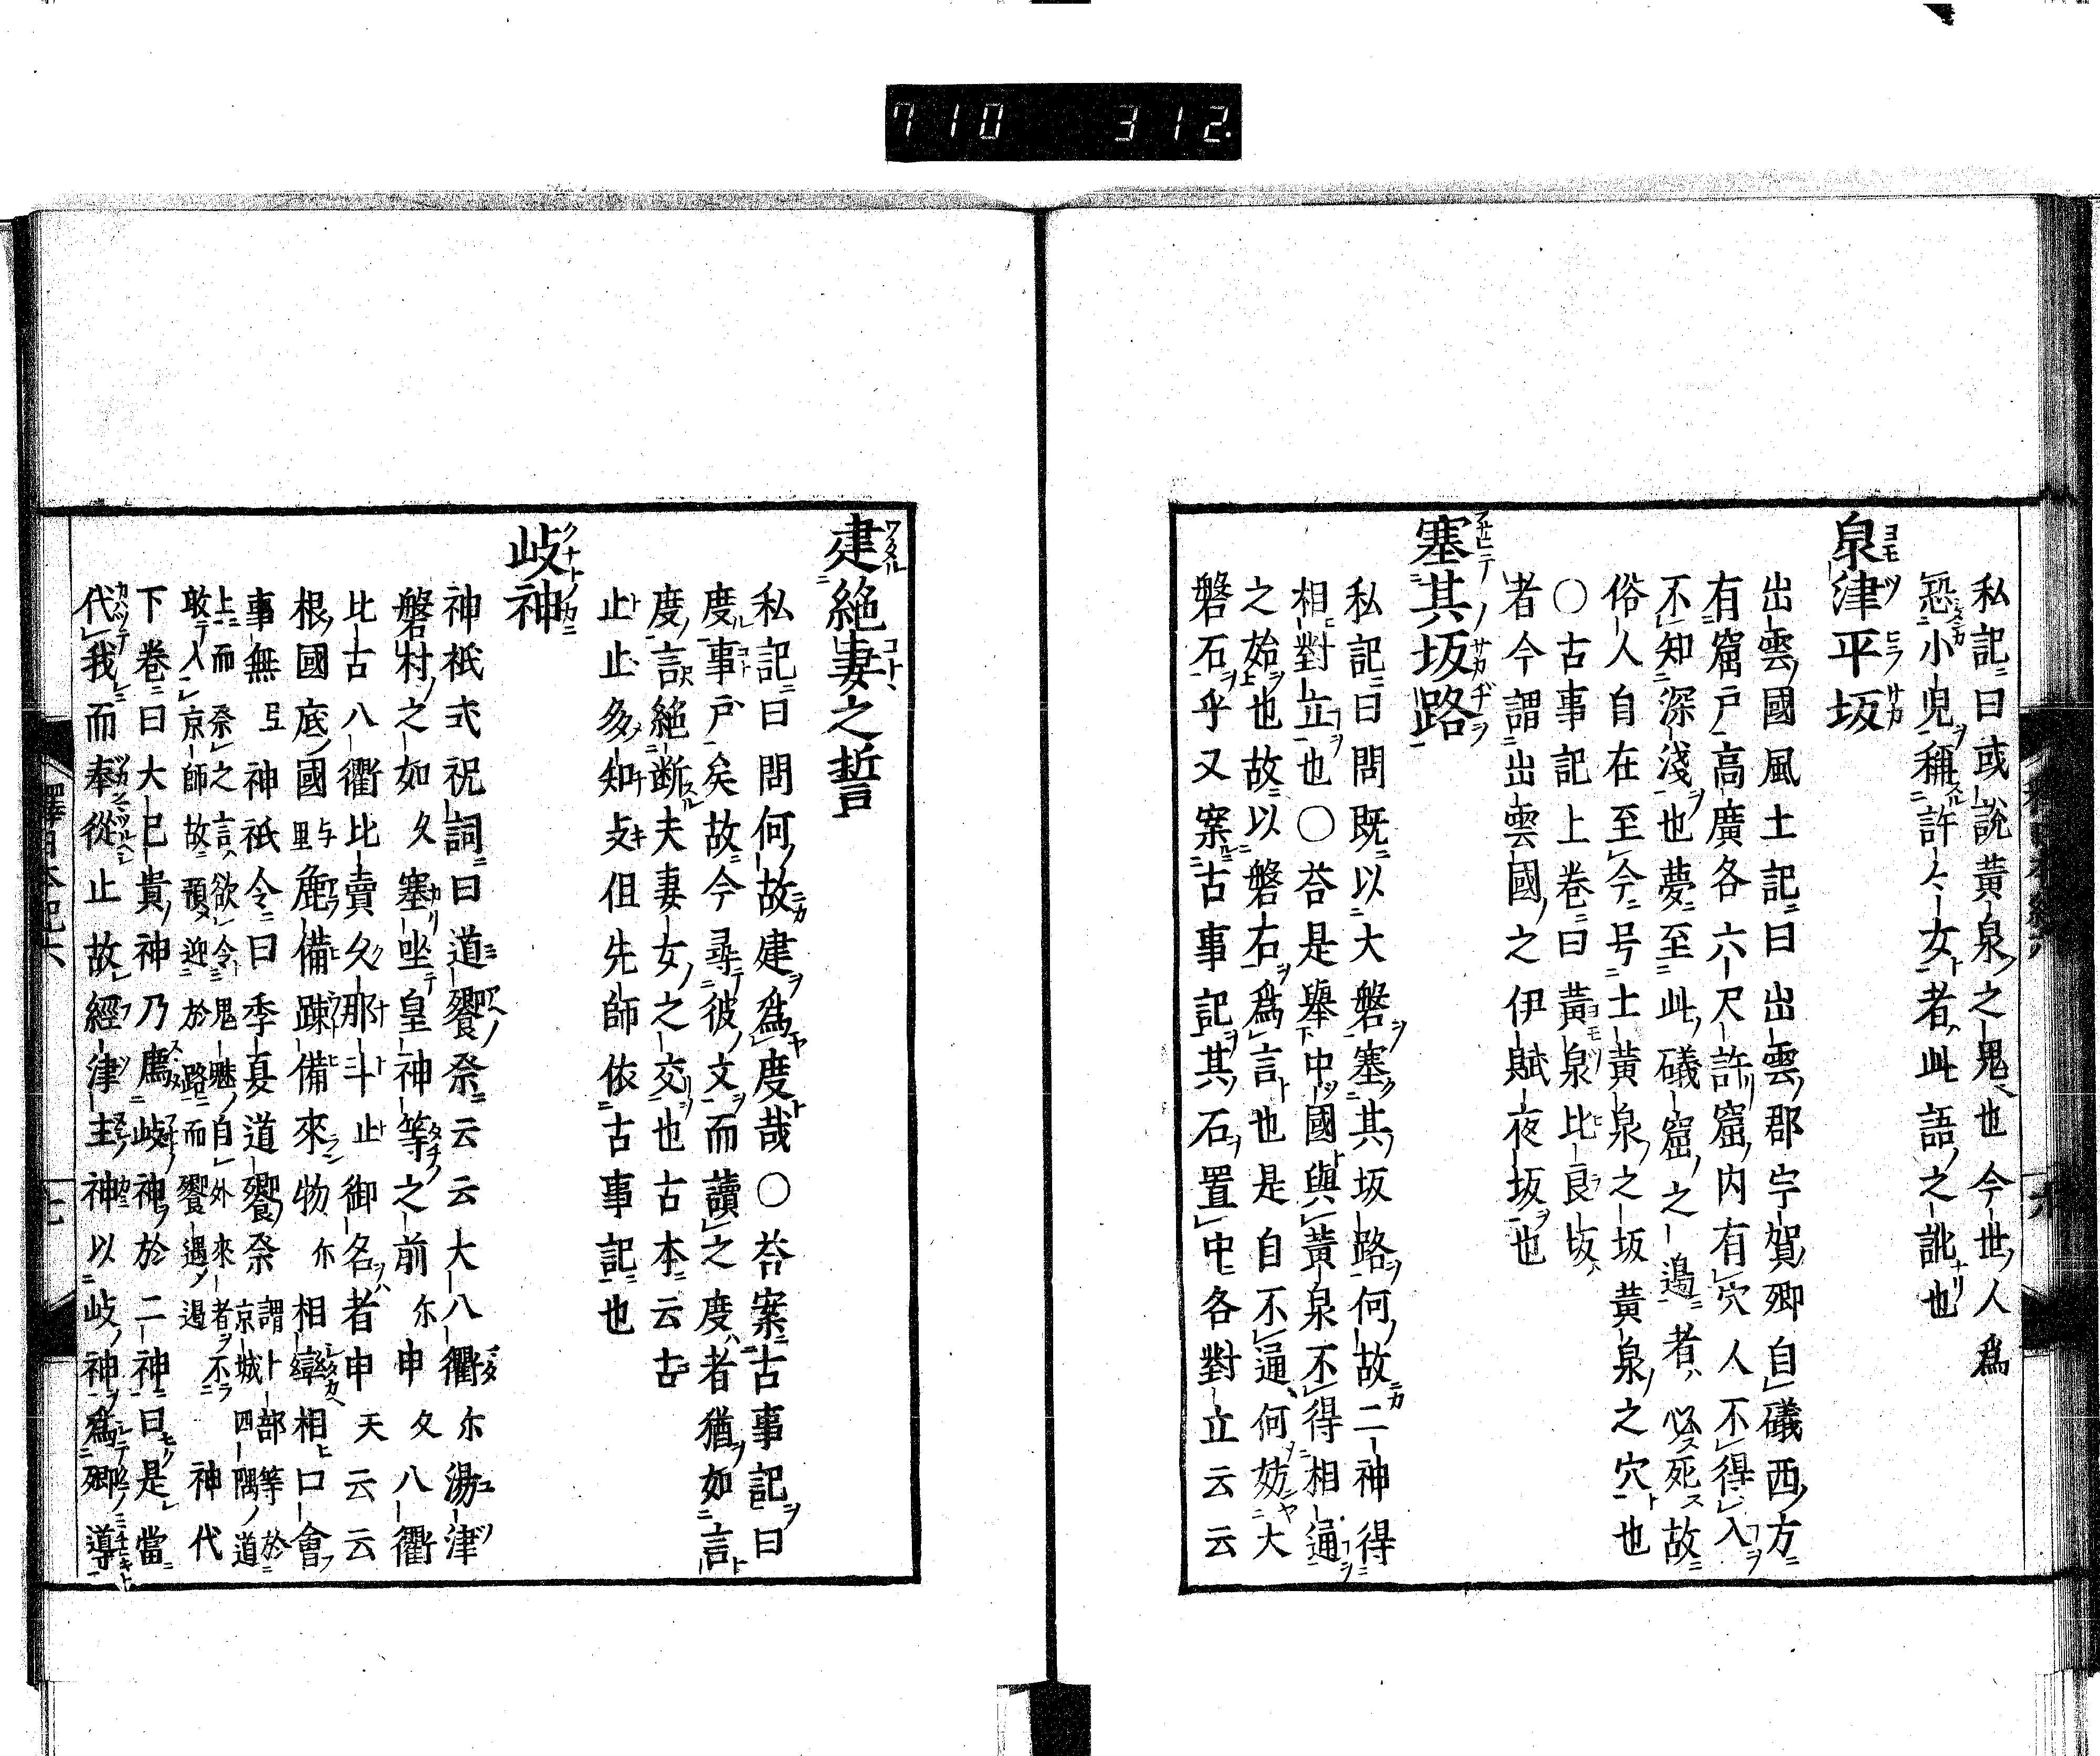 710 312.
私記曰或說黃泉之鬼也今世人爲
恐小兒稱許々女者此語之訛也
泉津平坂
出雲國風土記曰出雲郡宇賀鄉自礒西方
有窟戶高廣各六尺許窟内有穴人不得入
不知深淺也夢至此礒窟之邊者必死故
俗人自在至今号土黃泉之坂黃泉之穴也
○古事記上卷曰黃泉比良坂
者今謂出雲國之伊賦夜坂也
塞其坂路
私記曰問既以大磐塞其坂路何故二神得
相對立也○荅是舉中國與黃泉不得相通
之始也故以磐石爲言也是自不通何妨大
磐石乎又案古事記其石置中各對立云云
建絶妻之誓
私記曰問何故建爲度哉○荅案古事記曰
度事戶矣故今尋彼文而讀之度者猶如言
度言絶斷夫妻女之交也古本云古
止止多知支但先師依古事記也
岐神
神祇式祝詞曰道饗祭云云大八衢尓湯津
磐村之如久塞坐皇神等之前尓申久八衢
比古八衢比賣久那斗止御名者申天云云
根國底國与里麁備踈備來物尓相率相口會
事無弖神祇令曰季夏道饗祭謂卜部等於京城四隅道
上而祭之言欲令鬼魅自外來者不
敢入京師故預迎於路而饗遏 神代
下卷曰大己貴神乃薦岐神於二神曰是當
代我而奉從止故經津主神以岐神爲鄉導
釋日本紀六 七